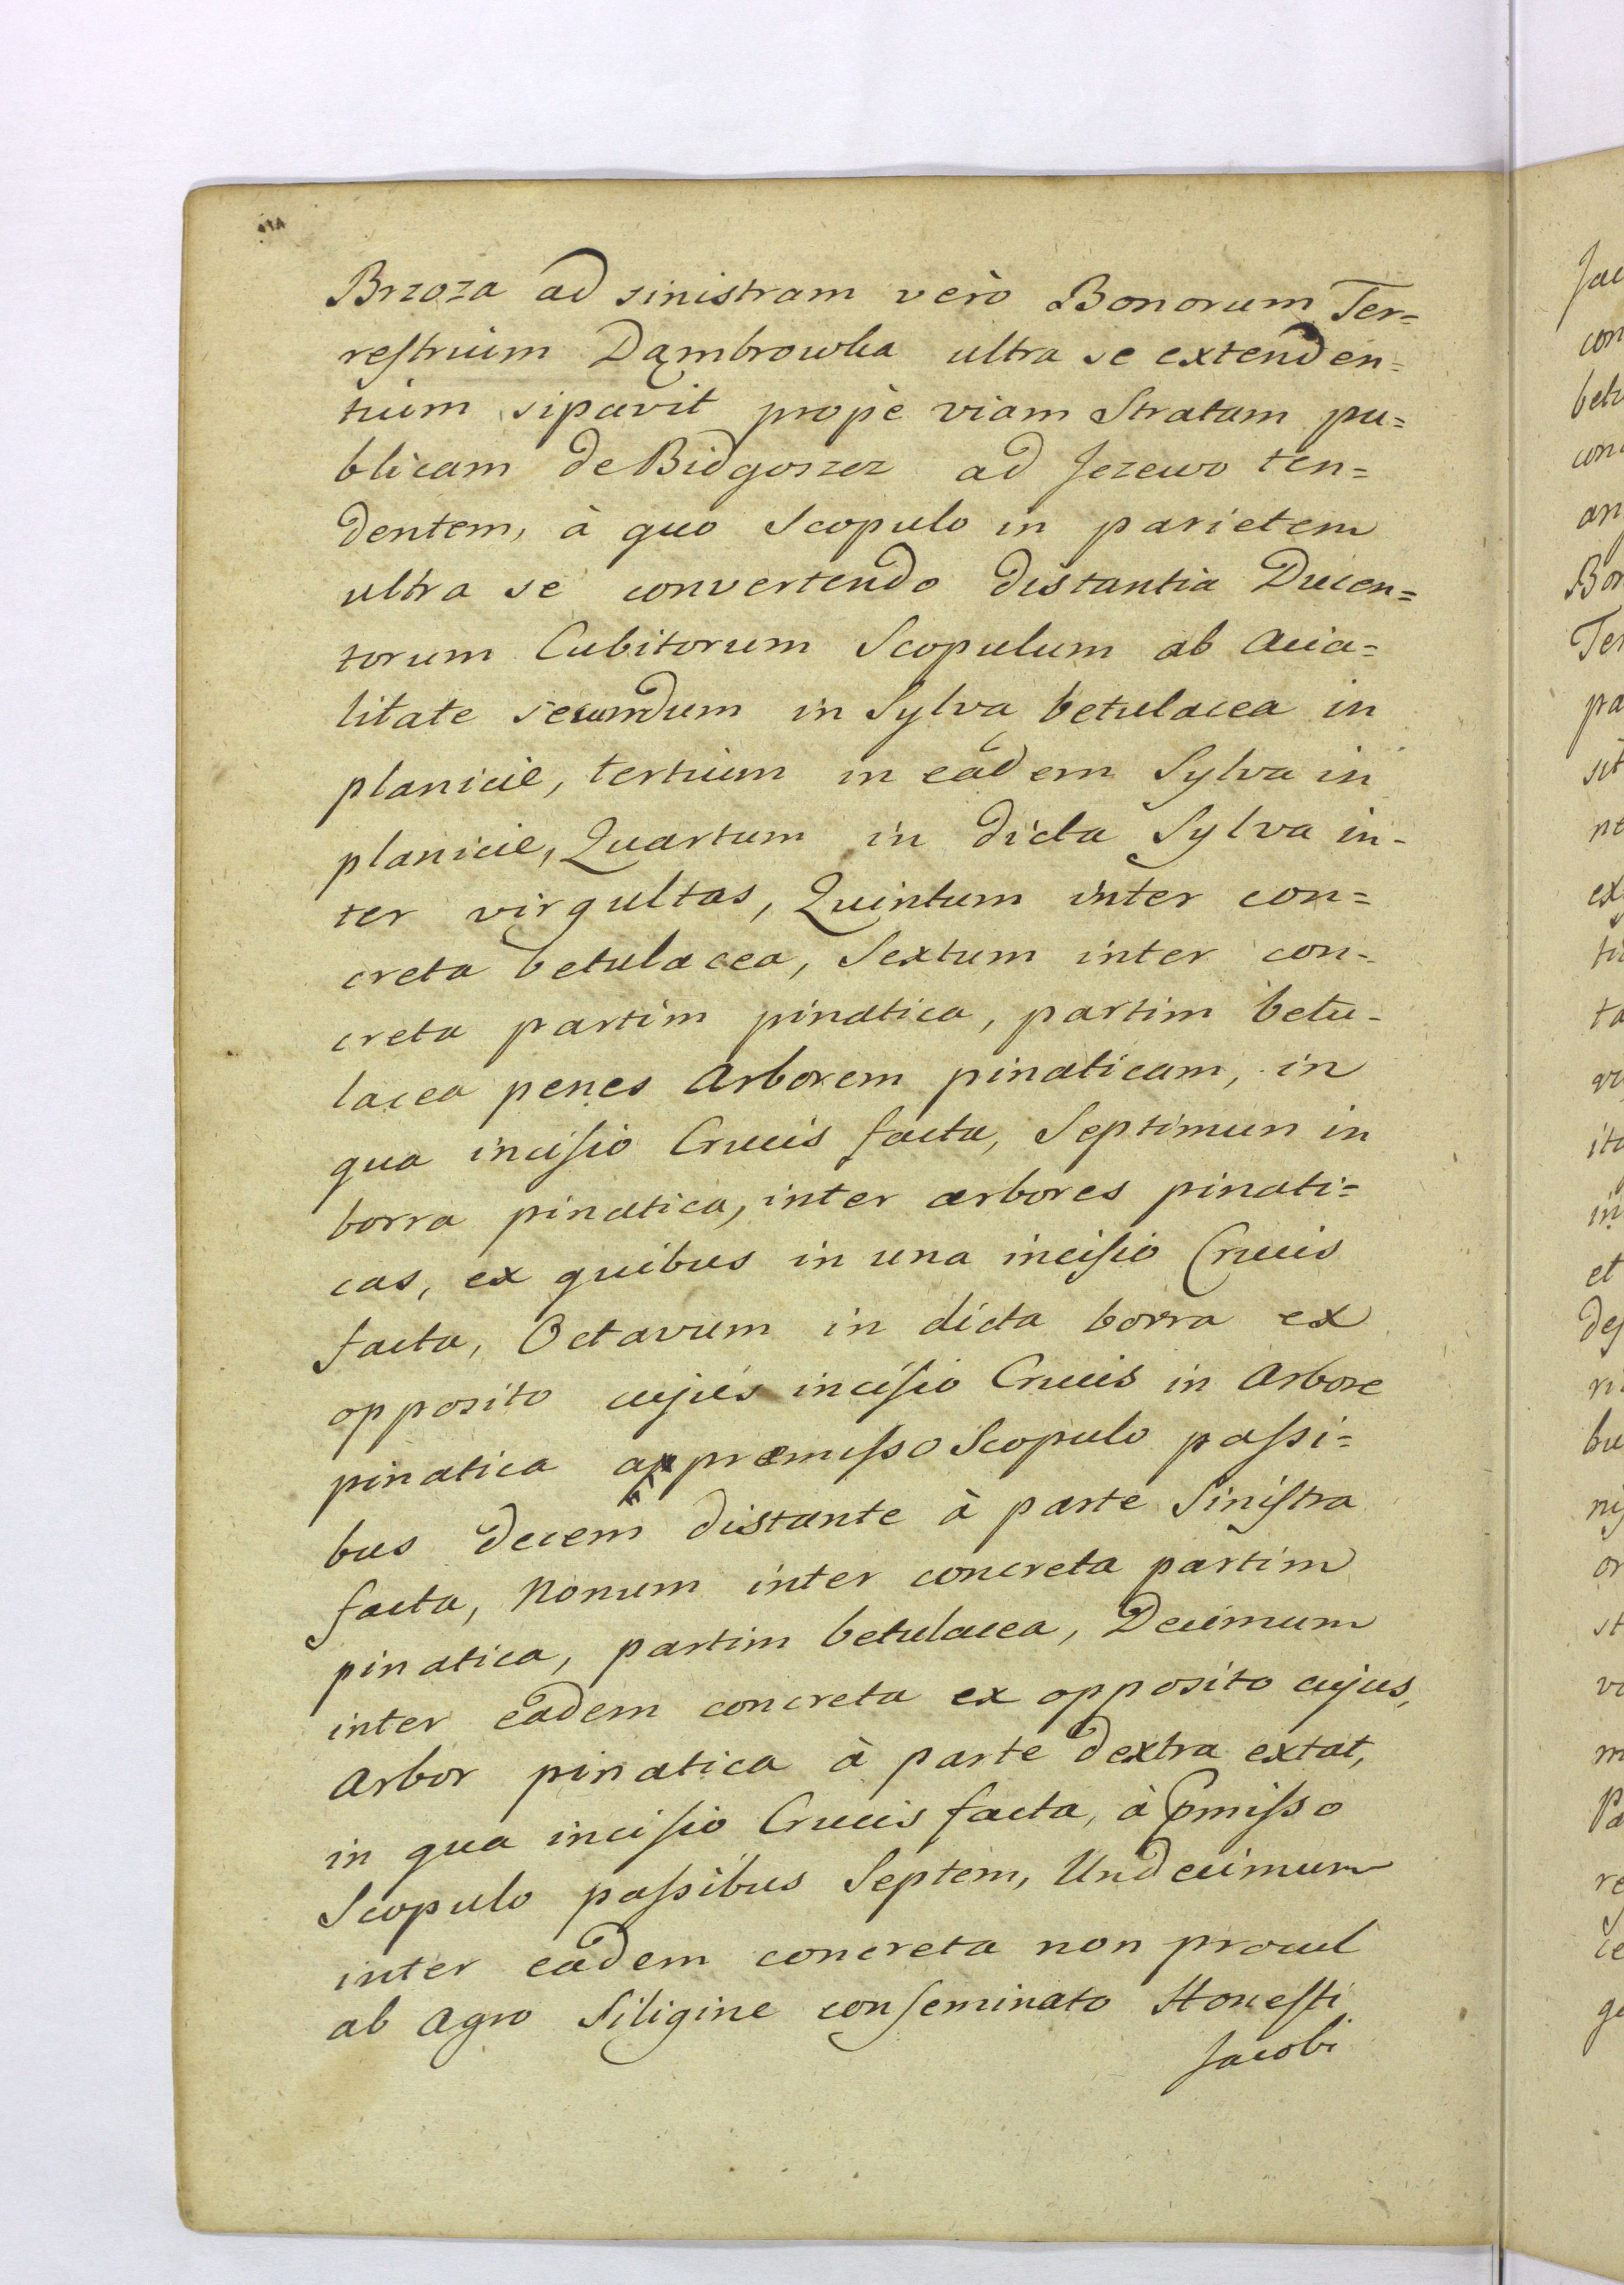 Brzoza ad sinistram verò Bonorum Ter=
reſtrium Dąmbrowka ultra se extenden=
tium sipavit propè viam Stratam pu=
blicam de Bidgoszcz ad Jezewo ten=
dentem, à quo Scopulo in parietem
ultra se convertendo distantia Ducen=
torum Cubitorum Scopulum ab Acia=
litate secundum in Sylva betulacea in
planicie, tertium in eâdem Sylva in
planicie, Quartum in dicta Sylva in-
ter virgultas, Quintum inter con=
creta betulacea, Sextum inter con-
creta partim pinatica, partim betu-
lacea penes Arborem pinaticam, in
qua inciſio Crucis facta, Septimum in
borra pinatica, inter arbores pinati=
cas, ex quibus in una inciſio Crucis
facta, Octavum in dicta borra ex
opposito cujus inciſio Crucis in Arbore
pinatica a præmiſso Scopulo paſsi=
bus decem distante à parte Siniſtra
facta, Nonum inter concreta partim
pinatica, partim betulacea, Decimum
inter eadem concreta ex opposito cujus,
Arbor pinatica à parte dextra extat,
in qua inciſio Crucis facta, à pmiſso
Scopulo paſsibus Septem, Undecimum
inter eadem concreta non procul
ab Agro Siligine conſeminato Honeſti
Jacobi
Jac
con
betu
conc
an
Bon
Ter
pa
sit
ex
ta
in
et
deſ